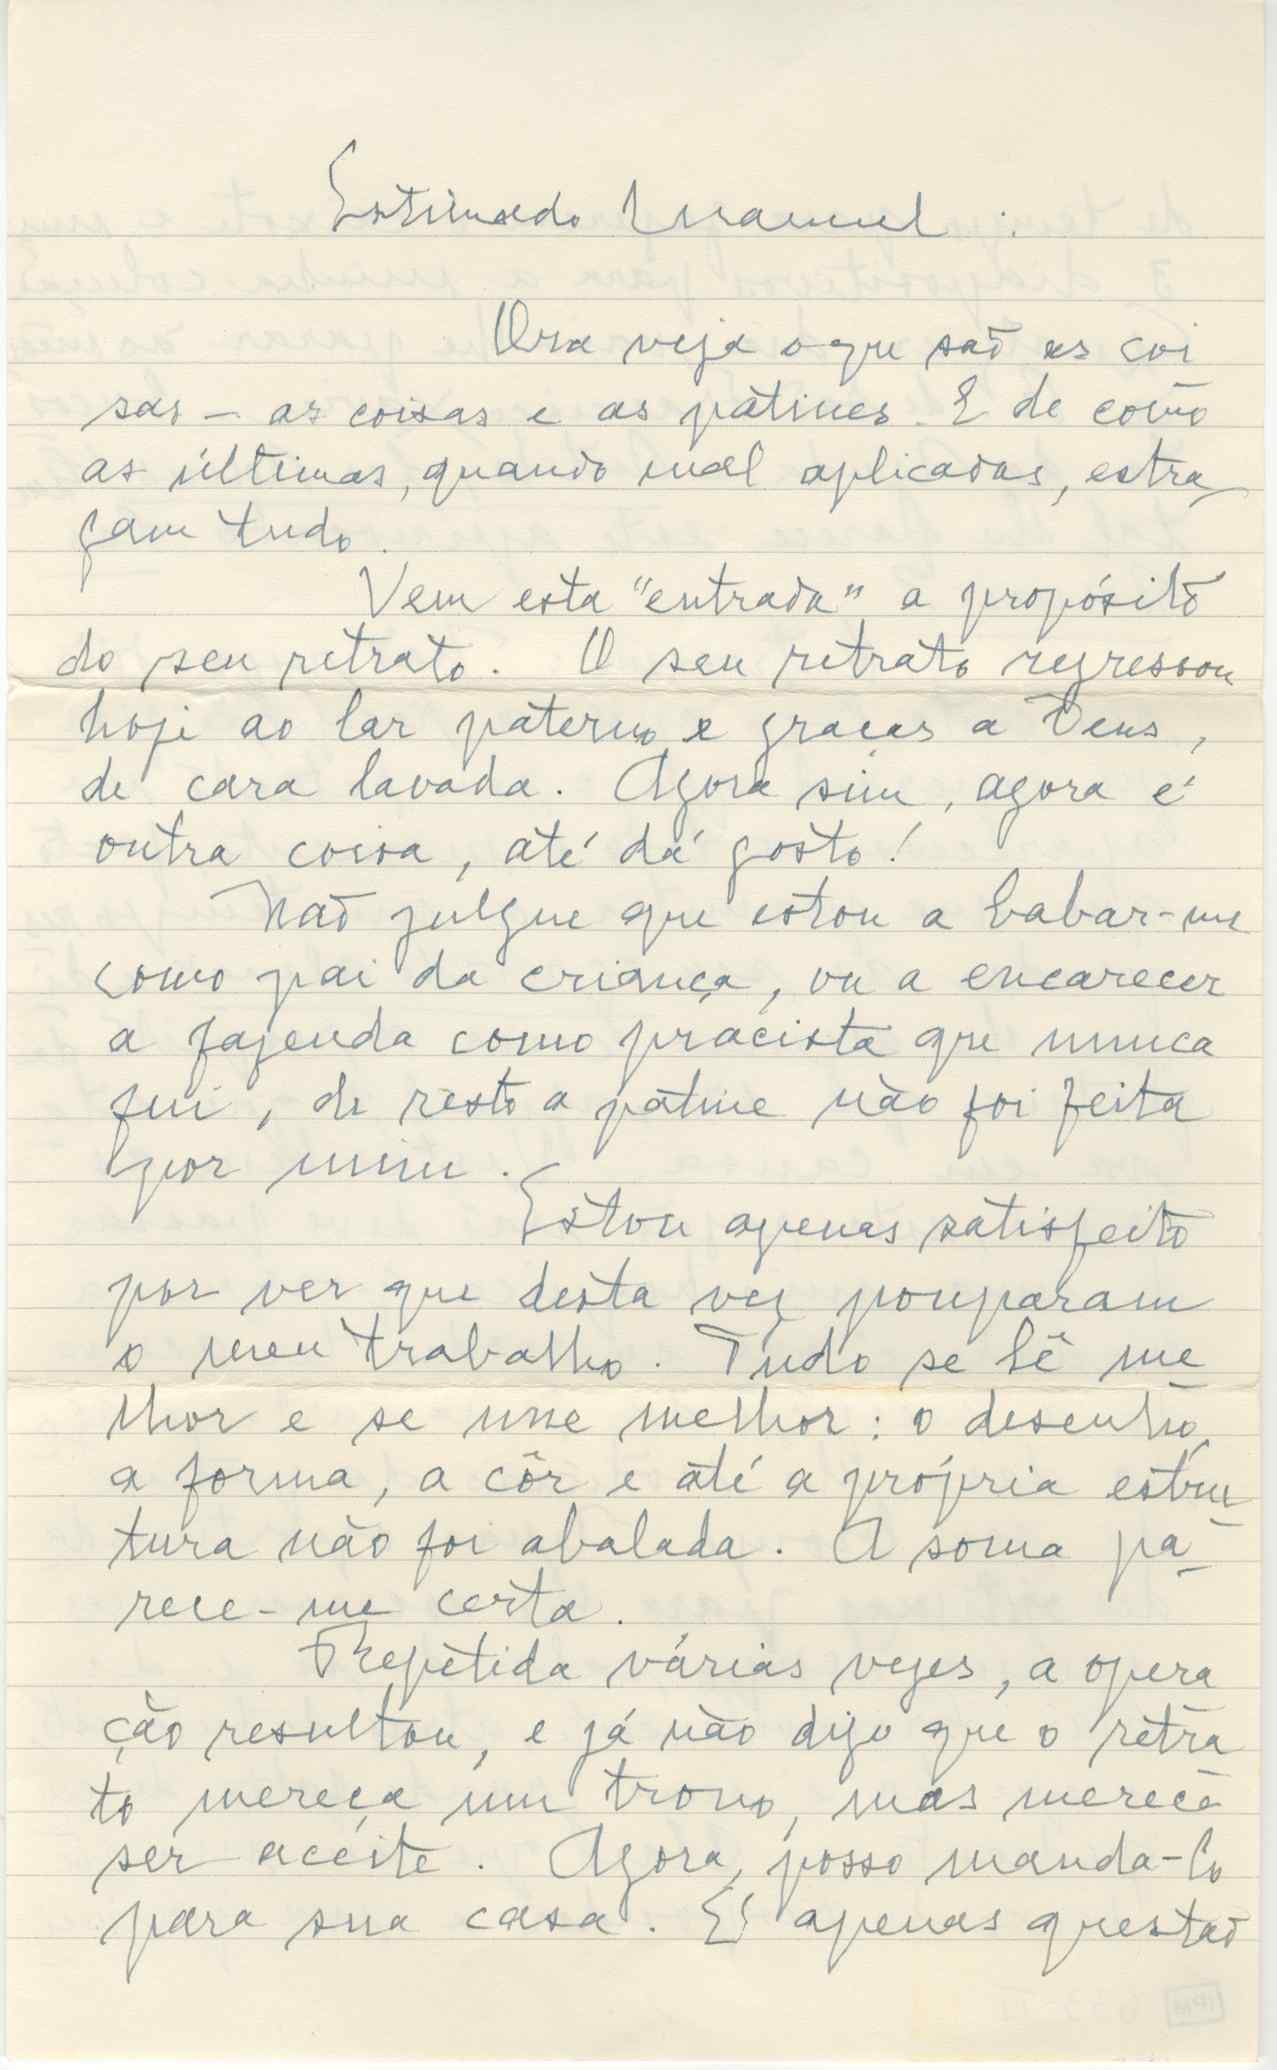 Estimado Manuel :
Ora veja o que são as coi
sas — as coisas e as pátines. E de como
as últimas, quando mal aplicadas, estra
gam tudo.
Vem esta "entrada" a propósito
do seu retrato. O seu retrato regressou
hoje ao lar paterno e graças a Deus,
de cara lavada. Agora sim, agora é
outra coisa, até dá gosto!
Não julgue que estou a babar-me
como pai da criança, ou a encarecer
a fazenda como pracista que nunca
fui, de resto a pátine não foi feita
por mim.
Estou apenas satisfeito
por ver que desta vez pouparam
o meu trabalho. Tudo se lê me
lhor e se une melhor: o desenho,
a forma, a côr e até a própria estru
tura não foi abalada. A soma pa-
rece-me certa.
Repetida várias vezes, a opera
ção resultou, e já não digo que o retra
to mereça um trono, mas merece
ser aceite. Agora, posso manda-lo
para sua casa. É apenas questão